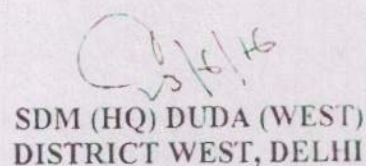 SDM (HQ) DUDA (WEST)
DISTRICT WEST, DELHI